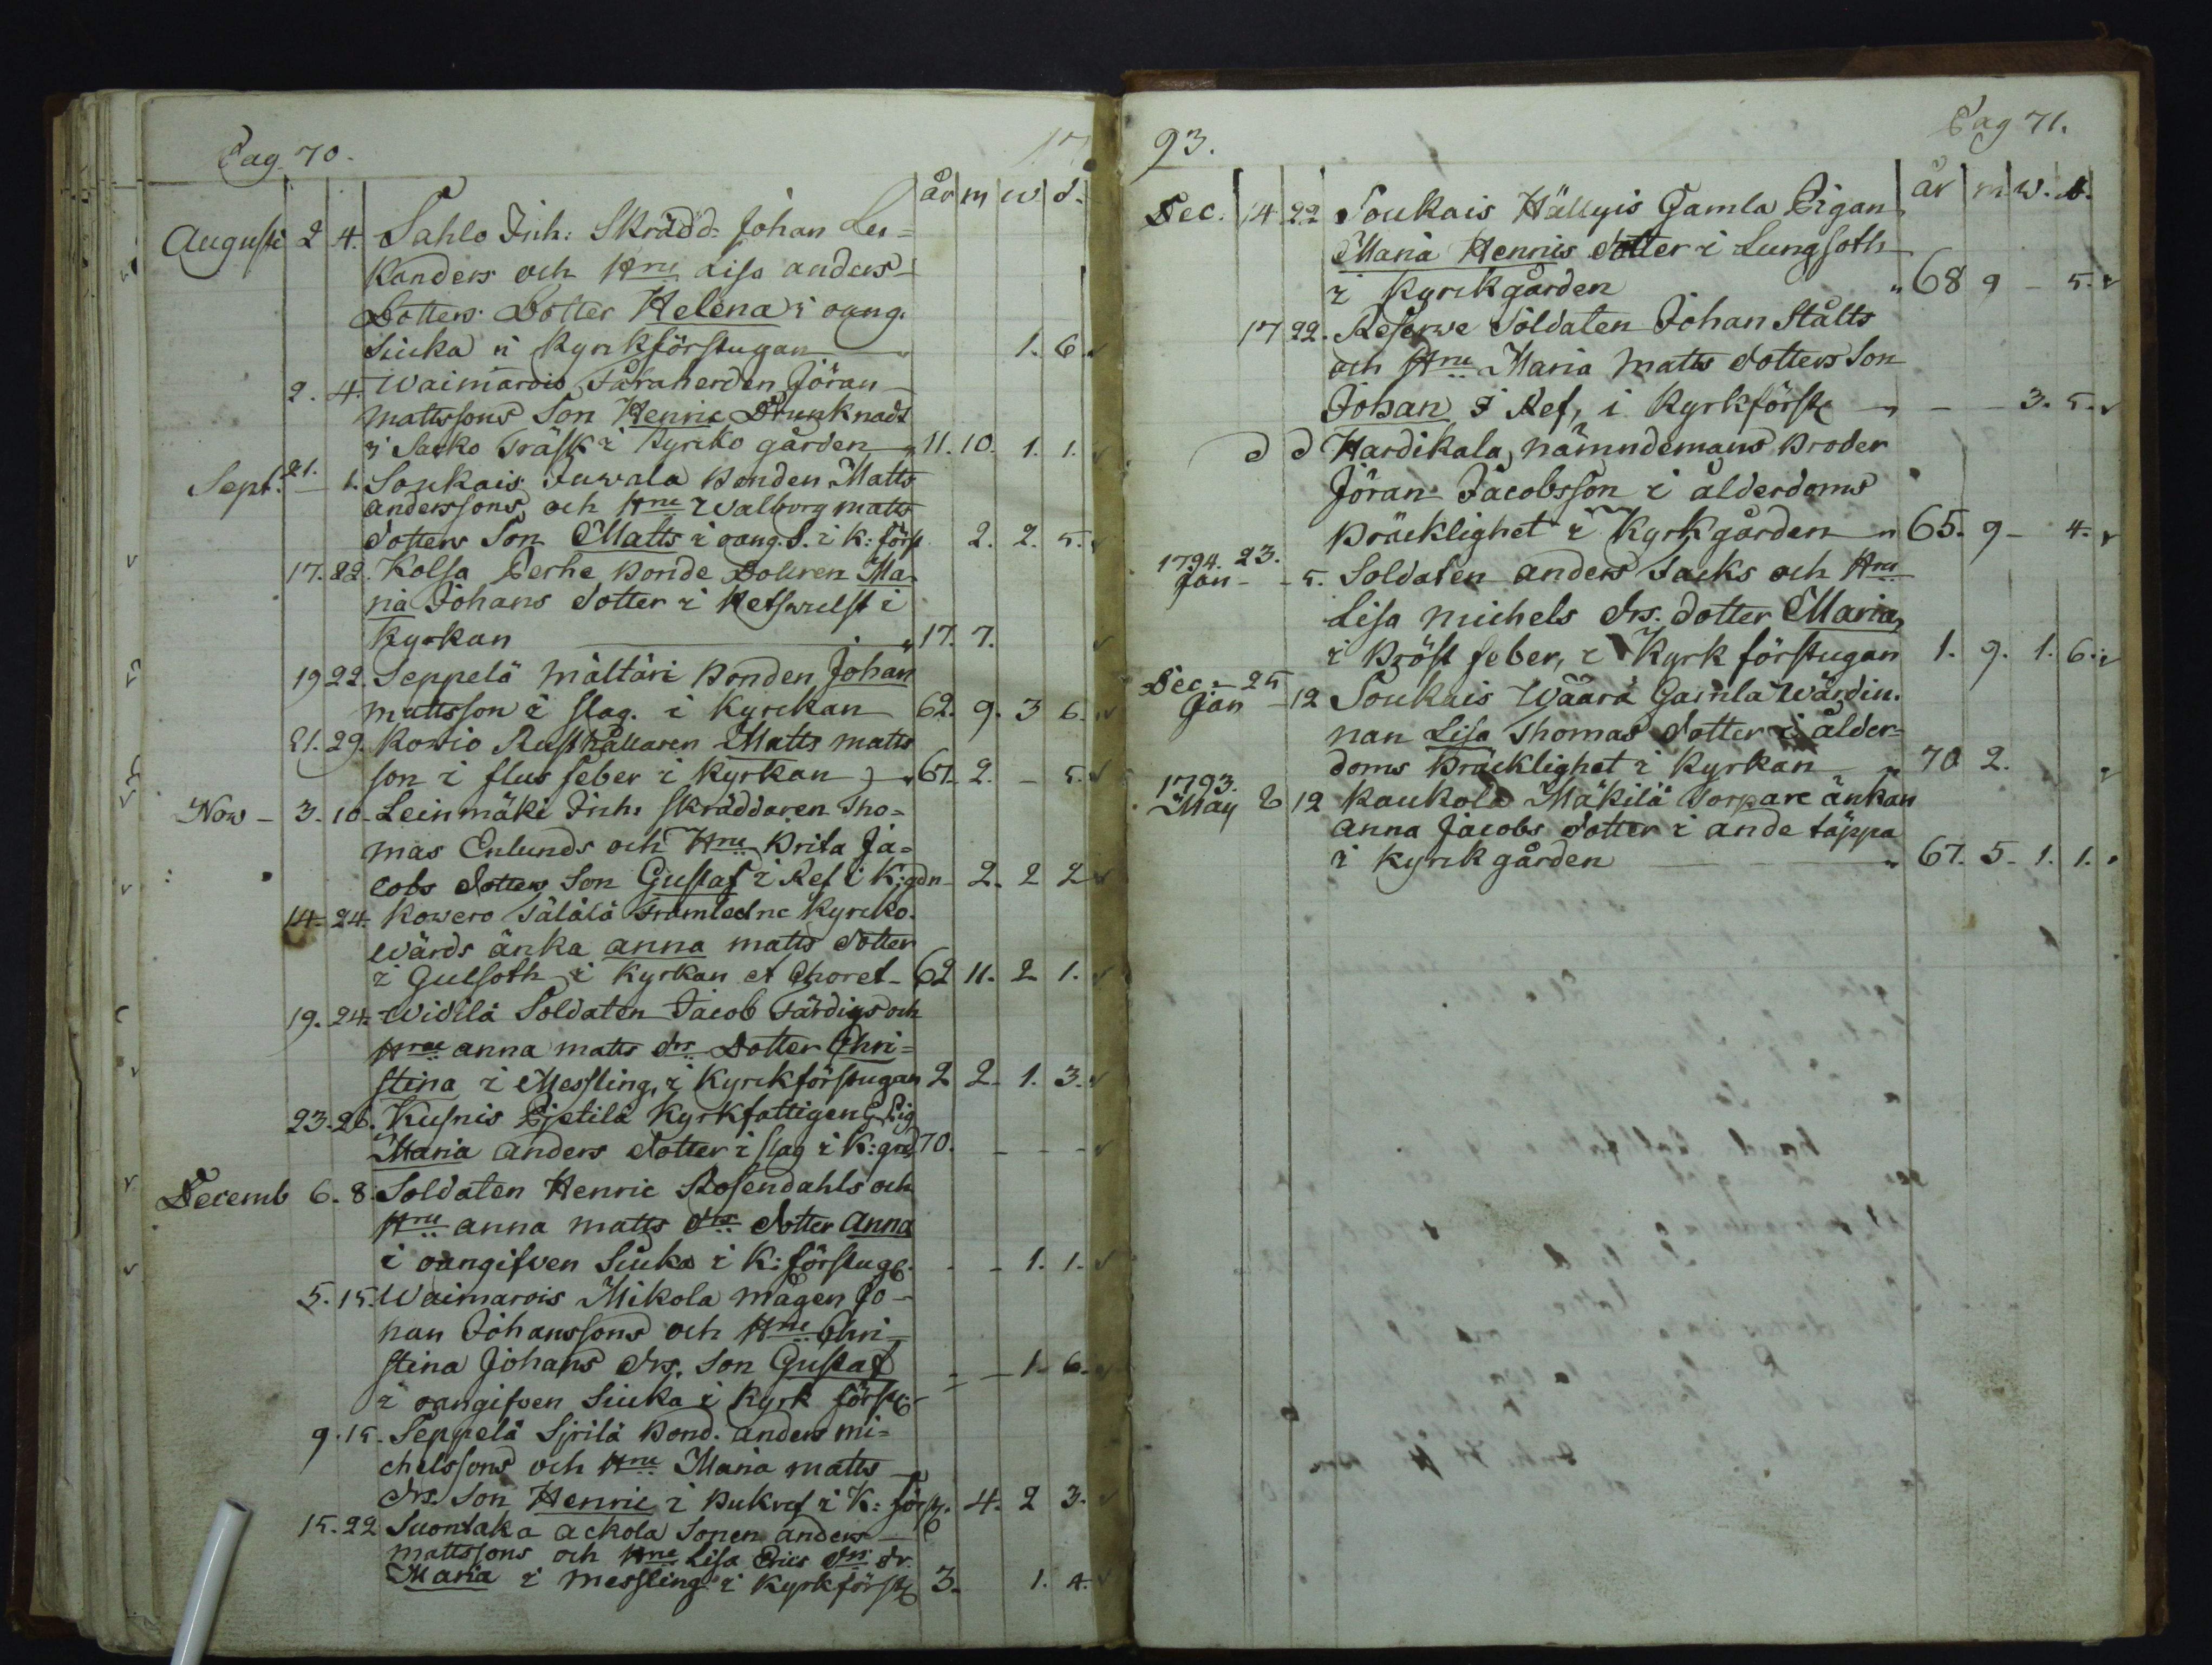 Pag 70. 17
år m w d.
Augusti 2 4. Sahlo Inh: Skrädd: Johan Leu=
kanders och Hru Lisa anders
Dotters Dotter Helena i oang.
Siuka i Kyrkförstugan 1. 6.
2. 4. Waimarois Fåraherden Jöran
mattssons Son Henric Drunknade
i Sacko Träsk i Kyrko gården 11. 10. 1. 1.
Sept. 21. 1. Soukais Juwala Bonden Matts
anderssons och Hru Walborg matts
dotters Son Matts i oang. S. i K: först 2. 2. 5.
17. 22. Kolsa Perhe Bonde Dottren Ma-
ria Johans dotter i Retswulst i
Kyrkan 17. 7.
19 22. Seppelä Mältäri Bonden Johan
mattsson i slag. i Kyrckan 62. 9. 3 6.
21. 29. Rusthållaren Matts matts
son i flus feber i Kyrkan 67. 2. - 5.
Nov - 3. 10. Leinmäki Inh: skräddaren Tho=
mas Enlunds och Hru Brita Ja=
cobs dotters Son Gustaf i Ref i K: gdn 2. 2 2
14. 24. Kowero Jälälä Framledne Kyrcko-
wärds änka anna matts dotter
i Gulsoth i Kyrkan et Choret 62 11. 2 1.
19. 24. Widilä Soldaten Jacob Färdigs och
Hrue anna matts drs Dotter Chri=
stina i Messling, i Kyrckförstugan 2 2 1. 3.
23. 26. Kusnis Pjetilä Kyrkfattigen G. Pig
Maria anders dotter i slag i K: grd 70. - - -
Decemb 6. 8. Soldaten Henric Rosendahls och
Hru anna matts drs dotter Anna
i oangifven Siuka i K: förstug - - 1. 1.
5. 15. Waimarois Mikola mågen Jo-
han Johanssons och Hru Chri
stina Johans drs. Son Gustaf
i oangifven Siuka i Kyrk först - - 1. 6.
9. 15. Seppelä Sjrilä Bond. anders mi=
chelssons och Hru Maria matts
drs. Son Henric i Bukref i K: först. 4. 2 3.
15. 22 Suontaka ackola Sonen anders
mattssons och Hru Lisa Erics drs dr.
Maria i messling i Kyrkförst 3. 1. 4.
93. Pag 71.
år m w. d.
Dec. 14 22 Soukais Hällyis Gamla Pigan
Maria Henrics dotter i Lungsoth
i Kyrckgården 68 9 - 5.
17 22. Reserwe Soldaten Johan Stålts
och Hru Maria Matts dotters Son
Johan i Ref, i Kyrkförst - - 3. 5.
d d Hardikala, nämndemans Broder
Jöran Jacobsson i ålderdoms
Bräcklighet i Kyrkgården 65. 9 - 4.
1794. 23.
Jan - 5. Soldaten anders Jacks och Hru
Lisa michels drs. dotter Maria,
i Bröst feber, i Kyrk förstugan 1. 9. 1. 6.
Dec. 25
Jan - 12 Soukais Wäärä Gamla Wärdin-
nan Lisa Thomas dotter i ålder-
doms Bräcklighet i Kyrkan 70 2.
1793.
May 6 12 Kaukola Mäkilä Torpare änkan
Anna Jacobs dotter i ande täppa
i Kyrckgården 67. 5. 1. 1.